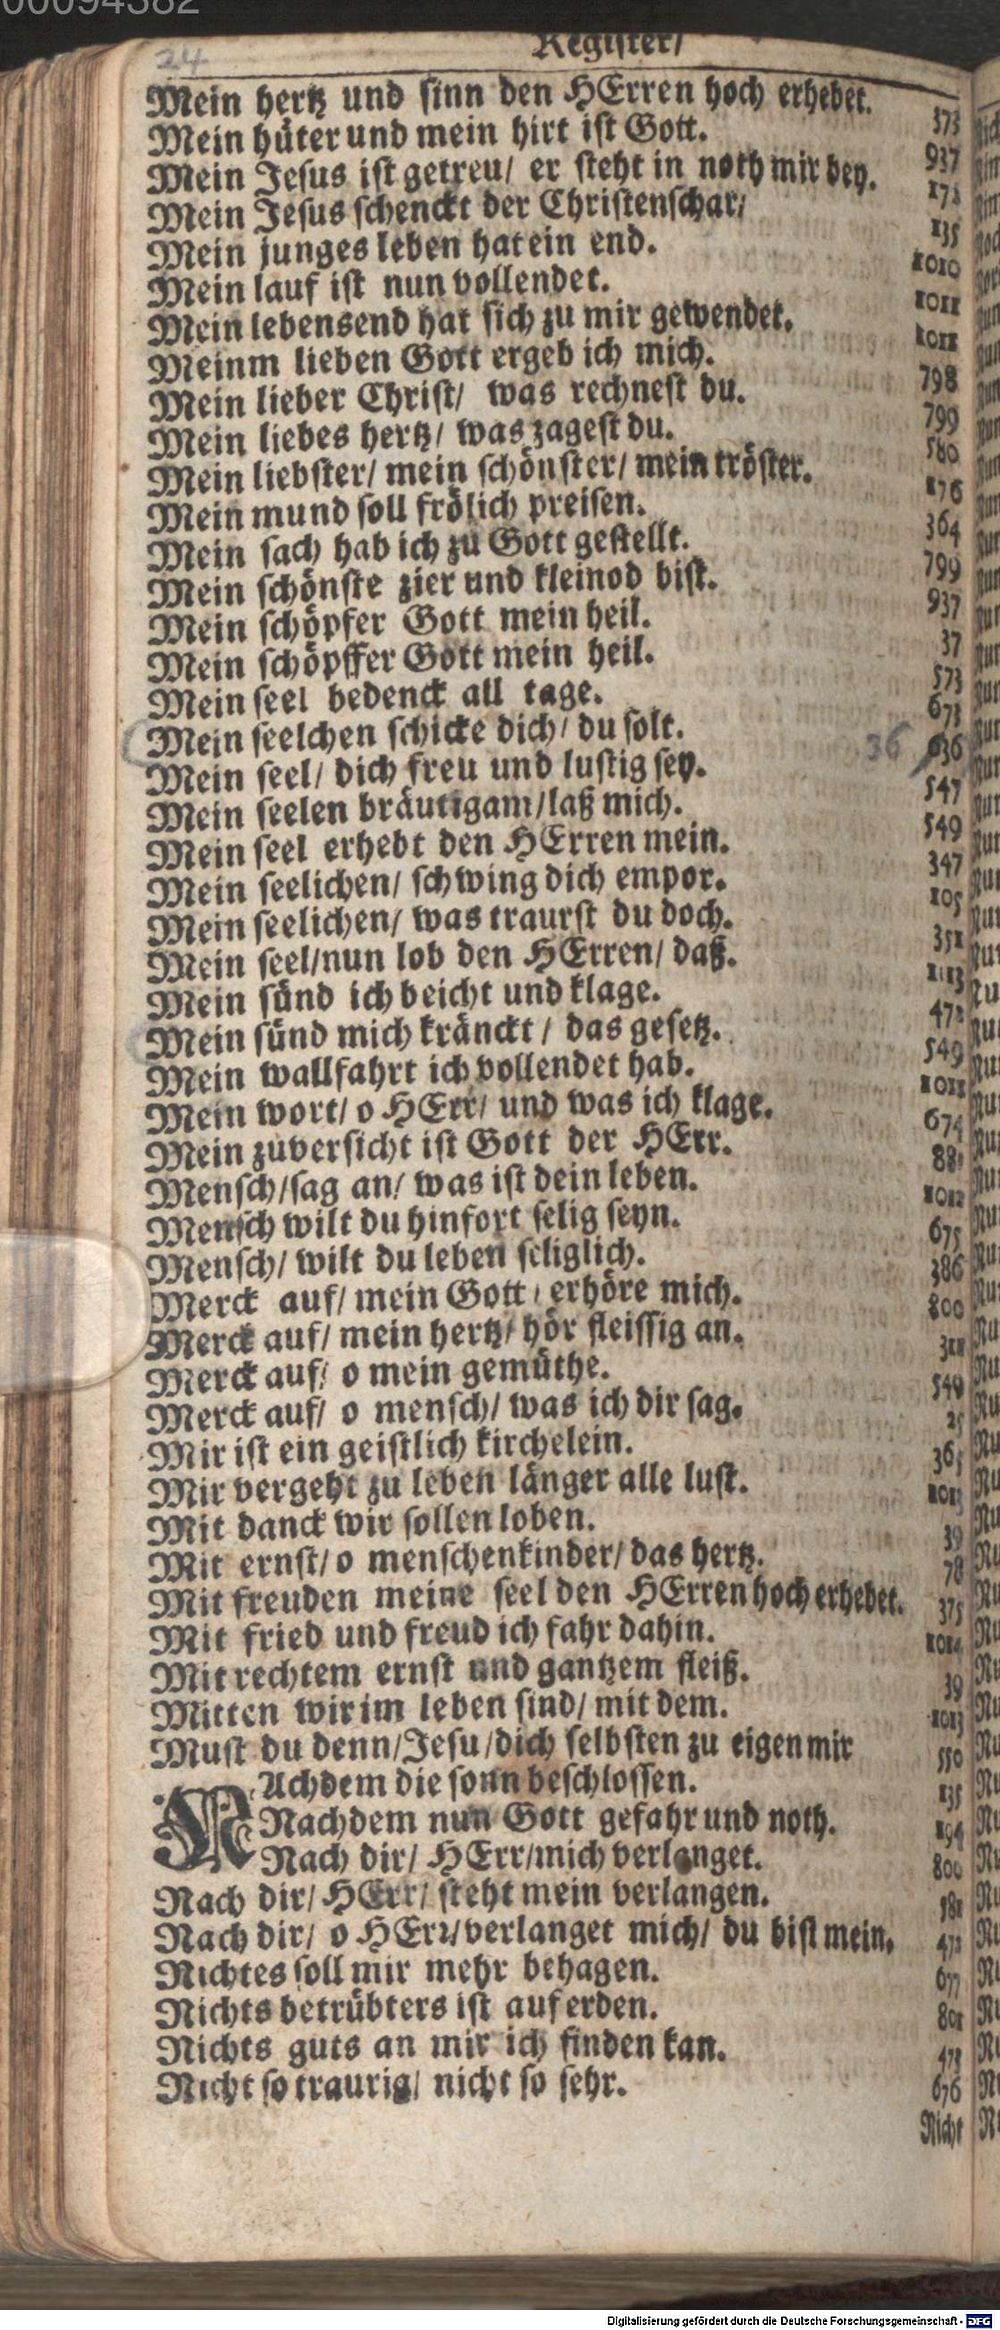 00094382
24
Register/
Mein hertz und sinn den HErren hoch erhebet. 373
Mein hüter und mein hirt ist Gott. 937
Mein Jesus ist getreu/ er steht in noth mir bey. 172
Mein Jesus schenckt der Christenschar/ 135
Mein junges leben hat ein end. 1010
Mein lauf ist nun vollendet. 1011
Mein lebensend hat sich zu mir gewendet. 1011
Meinm lieben Gott ergeb ich mich. 798
Mein lieber Christ/ was rechnest du. 799
Mein liebes hertz/ was zagest du. 580
Mein liebster/ mein schönster/ mein tröster. 176
Mein mund soll frölich preisen. 364
Mein sach hab ich zu Gott gestellt. 799
Mein schönste zier und kleinod bist. 937
Mein schöpfer Gott mein heil. 37
Mein schöpffer Gott mein heil. 573
Mein seel bedenck all tage. 673
Mein seelchen schicke dich/ du solt. 36 636
Mein seel/ dich freu und lustig sey. 547
Mein seelen bräutigam/ laß mich. 549
Mein seel erhebt den HErren mein. 347
Mein seelichen/ schwing dich empor. 105
Mein seelichen/ was traurst du doch. 351
Mein seel/ nun lob den HErren/ daß. 1113
Mein sünd ich beicht und klage. 472
Mein sünd mich kränckt/ das gesetz. 549
Mein wallfahrt ich vollendet hab. 1011
Mein wort/ o HErr/ und was ich klage. 674
Mein zuversicht ist Gott der HErr. 881
Mensch/ sag an/ was ist dein leben. 1012
Mensch wilt du hinfort selig seyn. 675
Mensch/ wilt du leben seliglich. 386
Merck auf/ mein Gott/ erhöre mich. 800
Merck auf/ mein hertz/ hör fleissig an. 311
Merck auf/ o mein gemüthe. 549
Merck auf/ o mensch/ was ich dir sag. 25
Mir ist ein geistlich kirchelein. 365
Mir vergeht zu leben länger alle lust. 1013
Mit danck wir sollen loben. 39
Mit ernst/ o menschenkinder/ das hertz. 78
Mit freuden meine seel den HErren hoch erhebet. 375
Mit fried und freud ich fahr dahin. 1014
Mit rechtem ernst und gantzem fleiß. 39
Mitten wir im leben sind/ mit dem. 1013
Must du denn/ Jesu/ dich selbsten zu eigen mir 550
NAchdem die sonn beschlossen. 135
Nachdem nun Gott gefahr und noth. 194
Nach dir/ HErr/ mich verlanget. 800
Nach dir/ HErr/ steht mein verlangen. 581
Nach dir/ o HErr/ verlanget mich/ du bist mein. 472
Nichtes soll mir mehr behagen. 677
Nichts betrübters ist auf erden. 801
Nichts guts an mir ich finden kan. 473
Nicht so traurig/ nicht so sehr. 676
Nicht
Digitalisierung gefördert durch die Deutsche Forschungsgemeinschaft - DFG